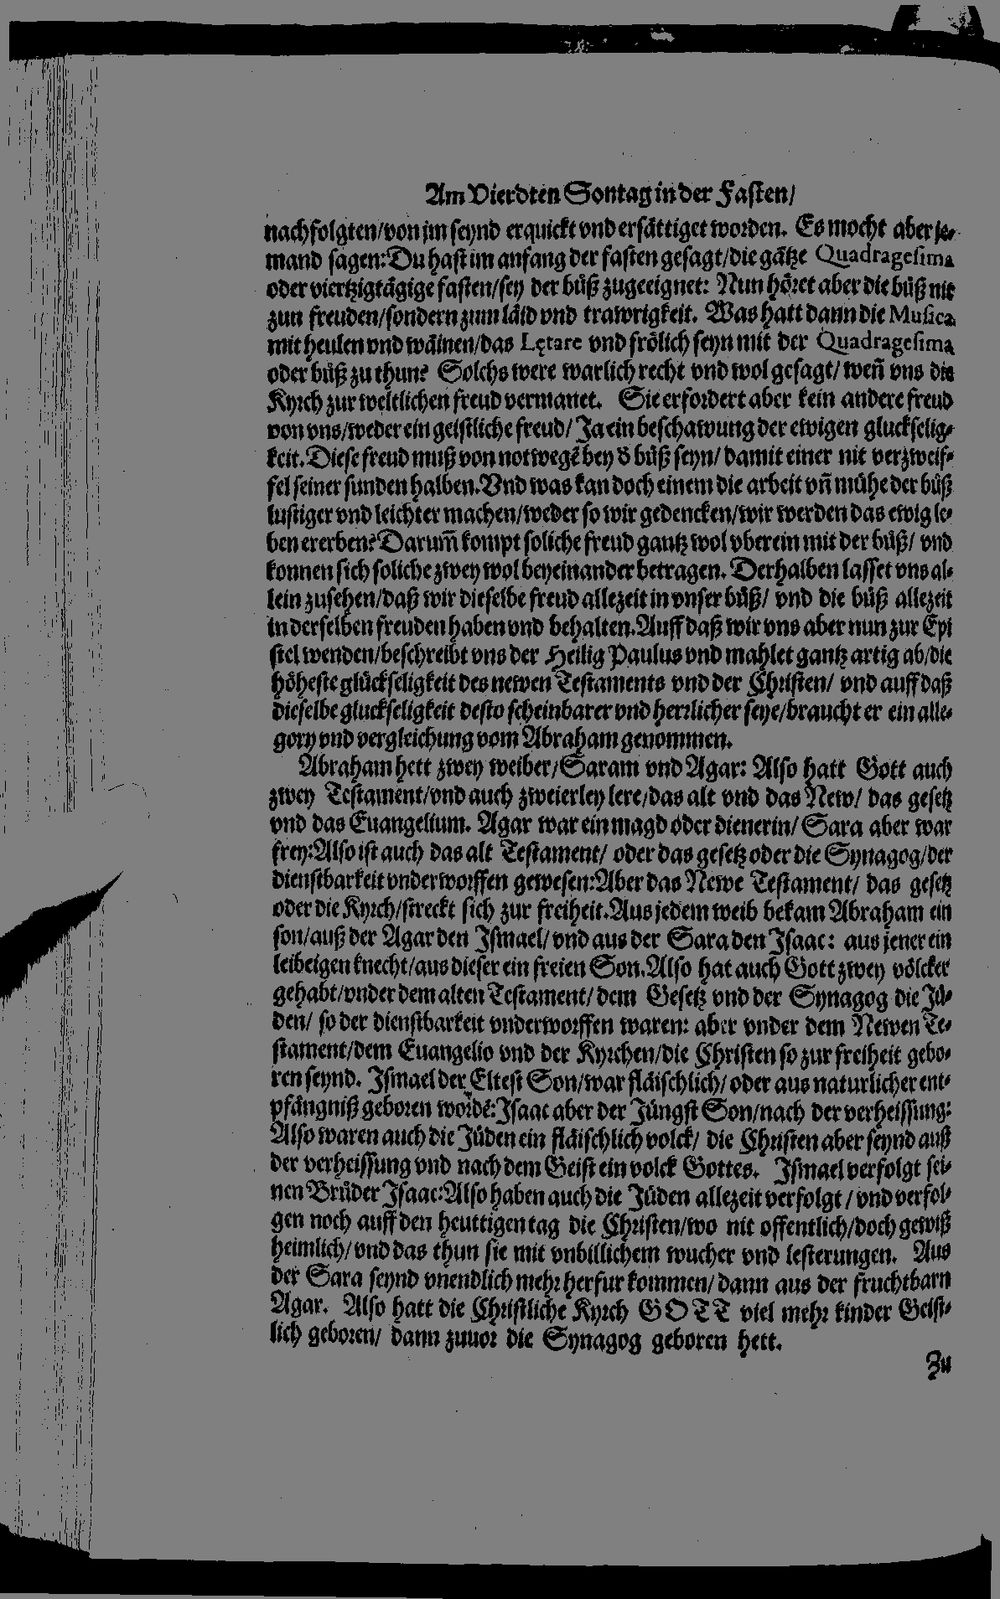 Am Vierdten Sontag in der Fasten/
nachfolgten/von jm seynd erquickt vnd ersättiget worden. Es mocht aber je-
mand sagen: Du hast im anfang der fasten gesagt/die gätze Quadragesima
oder viertzigtägige fasten/sey der büß zugeeignet: Nun höret aber die büß nit
zun freuden/sondern zum läid vnd trawrigkeit. Was hatt dann die Musica
mit heulen vnd wäinen/das Lętare vnd frölich seyn mit der Quadragesima
oder büß zu thun? Solchs were warlich recht vnd wol gesagt/ weñ vns die
Kyrch zur weltlichen freud vermanet. Sie erfordert aber kein andere freud
von vns/weder ein geistliche freud/ Ja ein beschawung der ewigen gluckselig-
keit. Diese freud muß von notwegē bey d̕ büß seyn/ damit einer nit verzweif-
fel seiner sunden halben. Vnd was kan doch einem die arbeit vñ mühe der büß
lustiger vnd leichter machen/weder so wir gedencken/wir werden das ewig le-
ben ererben? Darum̃ kompt soliche freud gantz wol vberein mit der büß/ vnd
konnen sich soliche zwey wol beyeinander betragen. Derhalben lasset vns al-
lein zusehen/daß wir dieselbe freud allezeit in vnser büß/ vnd die büß allezeit
in derselben freuden haben vnd behalten. Auff daß wir vns aber nun zur Epi
stel wenden/beschreibt vns der Heilig Paulus vnd mahlet gantz artig ab/die
höheste glückseligkeit des newen Testaments vnd der Christen/ vnd auff daß
dieselbe gluckseligkeit desto scheinbarer vnd herrlicher seye/braucht er ein alle-
gory vnd vergleichung vom Abraham genommen.
Abraham hett zwey weiber/Saram vnd Agar: Also hatt Gott auch
zwey Testament/vnd auch zweierley lere/das alt vnd das New/ das gesetz
vnd das Euangelium. Agar war ein magd oder dienerin/ Sara aber war
frey: Also ist auch das alt Testament/ oder das gesetz oder die Synagog/der
dienstbarkeit vnderworffen gewesen: Aber das Newe Testament/ das gesetz
oder die Kyrch/streckt sich zur freiheit. Aus jedem weib bekam Abraham ein
son/auß der Agar den Ismael/ vnd aus der Sara den Isaac: aus jener ein
leibeigen knecht/aus dieser ein freien Son. Also hat auch Gott zwey völcker
gehabt/vnder dem alten Testament/ dem Gesetz vnd der Synagog die Jü-
den/ so der dienstbarkeit vnderworffen waren: aber vnder dem Newen Te-
stament/dem Euangelio vnd der Kyrchen/die Christen so zur freiheit gebo-
ren seynd. Ismael der Eltest Son/war fläischlich/ oder aus naturlicher ent-
pfängniß geboren wordē: Isaac aber der Jüngst Son/nach der verheissung:
Also waren auch die Jüden ein fläischlich volck/ die Christen aber seynd auß
der verheissung vnd nach dem Geist ein volck Gottes. Ismael verfolgt sei-
nen Brüder Isaac: Also haben auch die Jüden allezeit verfolgt/ vnd verfol-
gen noch auff den heuttigen tag die Christen/wo nit offentlich/doch gewiß
heimlich/vnd das thun sie mit vnbillichem wucher vnd lesterungen. Aus
der Sara seynd vnendlich mehr herfur kommen/ dann aus der fruchtbarn
Agar. Also hatt die Christliche Kyrch GOTT viel mehr kinder Geist-
lich geboren/ dann zuuor die Synagog geboren hett.
Zu